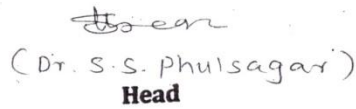 (Dr. S.S. Phulsagar)
Head